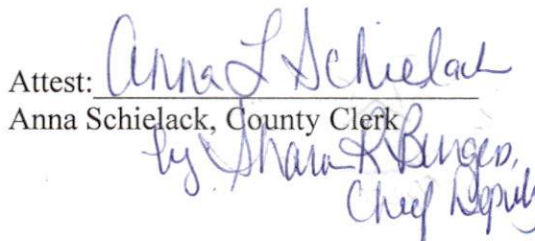 Attest: Anna L Schielack
Anna Schielack, County Clerk
by Sharon R Burges,
Chief Deputy